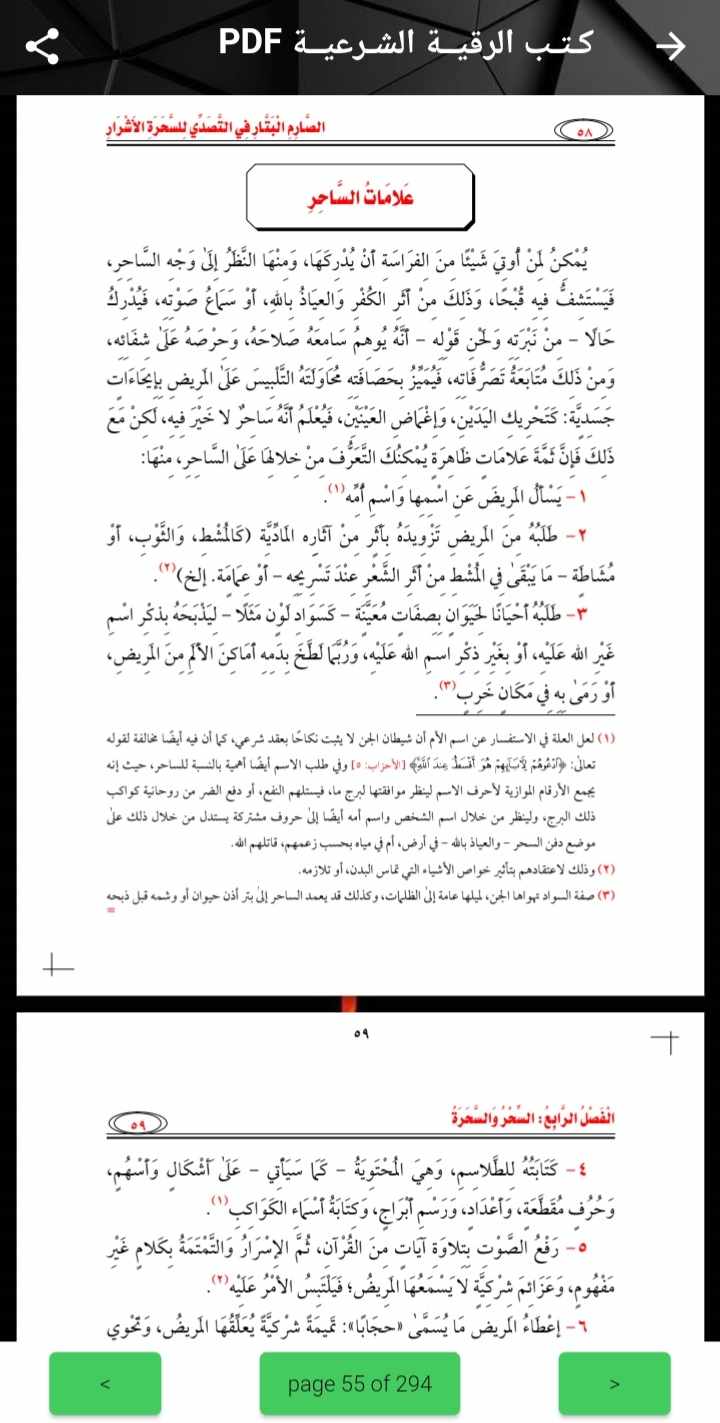 كتب الرقية الشرعية PDF
٥٨
الصَّارِم الْبَتَّار فِي التَّصَدِّي لِلسَّحَرَةِ الأَشْرَارِ
عَلَامَاتُ السَّاحِرِ
يُمْكِنُ لِمَنْ أُوتِيَ شَيْئًا مِنَ الفِرَاسَةِ أَنْ يُدْرِكَهَا، وَمِنْهَا النَّظَرُ إِلَىٰ وَجْهِ السَّاحِرِ،
فَيَسْتَشِفُّ فِيهِ قُبْحًا، وَذَلِكَ مِنْ أَثَرِ الكُفْرِ وَالعِيَاذُ بِاللهِ، أَوْ سَمَاعُ صَوْتِهِ، فَيُدْرِكُ
حَالًا - مِنْ نَبْرَتِهِ وَلَحْنِ قَوْلِهِ - أَنَّهُ يُوهِمُ سَامِعَهُ صَلَاحَهُ، وَحِرْصَهُ عَلَىٰ شِفَائِهِ،
وَمِنْ ذَلِكَ مُتَابَعَةُ تَصَرُّفَاتِهِ، فَيُمَيِّزُ بِحَصَافَتِهِ مُحَاوَلَتَهُ التَّلْبِيسَ عَلَىٰ المَرِيضِ بِإِيحَاءَاتٍ
جَسَدِيَّةٍ: كَتَحْرِيكِ اليَدَيْنِ، وَإِغْمَاضِ العَيْنَيْنِ، فَيُعْلَمُ أَنَّهُ سَاحِرٌ لَا خَيْرَ فِيهِ، لَكِنْ مَعَ
ذَلِكَ فَإِنَّ ثَمَّةَ عَلَامَاتٍ ظَاهِرَةٍ يُمْكِنُكَ التَّعَرُّفُ مِنْ خِلَالِهَا عَلَىٰ السَّاحِرِ، مِنْهَا:
١ - يَسْأَلُ المَرِيضَ عَنِ اسْمِهَا وَاسْمِ أُمِّهِ(١).
٢ - طَلَبُهُ مِنَ المَرِيضِ تَزْوِيدَهُ بِأَثَرٍ مِنْ آثَارِهِ المَادِّيَّةِ (كَالمُشْطِ، وَالثَّوْبِ، أَوْ
مُشَاطَةٍ - مَا يَبْقَىٰ فِي المُشْطِ مِنْ أَثَرِ الشَّعْرِ عِنْدَ تَسْرِيحِهِ - أَوْ عِمَامَةٍ. إلخ)(٢).
٣ - طَلَبُهُ أَحْيَانًا لِحَيَوَانٍ بِصِفَاتٍ مُعَيَّنَةٍ - كَسَوَادِ لَوْنٍ مَثَلًا - لِيَذْبَحَهُ بِذِكْرِ اسْمِ
غَيْرِ اللهِ عَلَيْهِ، أَوْ بِغَيْرِ ذِكْرِ اسْمِ اللهِ عَلَيْهِ، وَرُبَّمَا لَطَّخَ بِدَمِهِ أَمَاكِنَ الأَلَمِ مِنَ المَرِيضِ،
أَوْ رَمَىٰ بِهِ فِي مَكَانٍ خَرِبٍ(٣).
(١) لعل العلة في الاستفسار عن اسم الأم أن شيطان الجن لا يثبت نكاحًا بعقد شرعي، كما أن فيه أيضًا مخالفة لقوله
تعالىٰ: ﴿ادْعُوهُمْ لِآبَائِهِمْ هُوَ أَقْسَطُ عِندَ اللَّهِ﴾ [الأحزاب: ٥] وفي طلب الاسم أيضًا أهمية بالنسبة للساحر، حيث إنه
يجمع الأرقام الموازية لأحرف الاسم لينظر موافقتها لبرج ما، فيستلهم النفع، أو دفع الضر من روحانية كواكب
ذلك البرج، ولينظر من خلال اسم الشخص واسم أمه أيضًا إلىٰ حروف مشتركة يستدل من خلال ذلك علىٰ
موضع دفن السحر - والعياذ بالله - في أرض، أم في مياه بحسب زعمهم، قاتلهم الله.
(٢) وذلك لاعتقادهم بتأثير خواص الأشياء التي تماس البدن، أو تلازمه.
(٣) صفة السواد تهواها الجن، لميلها عامة إلىٰ الظلمات، وكذلك قد يعمد الساحر إلىٰ بتر أذن حيوان أو وشمه قبل ذبحه
=
٥٩
الْفَصْلُ الرَّابِعُ: السِّحْرُ وَالسَّحَرَةُ
٥٩
٤ - كِتَابَتُهُ لِلطَّلَاسِمِ، وَهِيَ المُحْتَوِيَةُ - كَمَا سَيَأْتِي - عَلَىٰ أَشْكَالٍ وَأَسْهُمٍ،
وَحُرُفٍ مُقَطَّعَةٍ، وَأَعْدَادٍ، وَرَسْمِ أَبْرَاجٍ، وَكِتَابَةُ أَسْمَاءِ الكَوَاكِبِ(١).
٥ - رَفْعُ الصَّوْتِ بِتِلَاوَةِ آيَاتٍ مِنَ القُرْآنِ، ثُمَّ الإِسْرَارُ وَالتَّمْتَمَةُ بِكَلَامٍ غَيْرِ
مَفْهُومٍ، وَعَزَائِمَ شِرْكِيَّةٍ لَا يَسْمَعُهَا المَرِيضُ؛ فَيَلْتَبِسُ الأَمْرُ عَلَيْهِ(٢).
٦ - إِعْطَاءُ المَرِيضِ مَا يُسَمَّىٰ «حِجَابًا»: تَمِيمَةً شِرْكِيَّةً يُعَلِّقُهَا المَرِيضُ، وَتَحْوِي
<
page 55 of 294
>